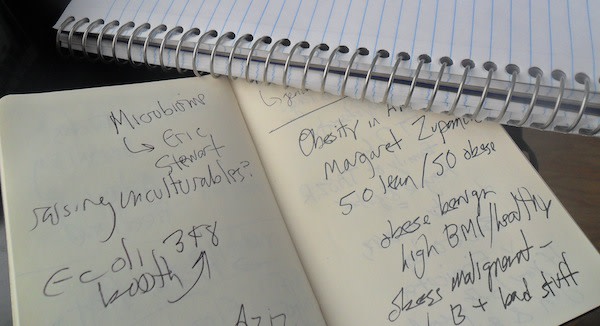 Microbiome
↳ Eric
Stewart
raising unculturables?
E coli 348
booth
Obesity in
Margaret
50 lean/50 obese
obese benign
high BMI/healthy
obese malignant -
B + bad stuff